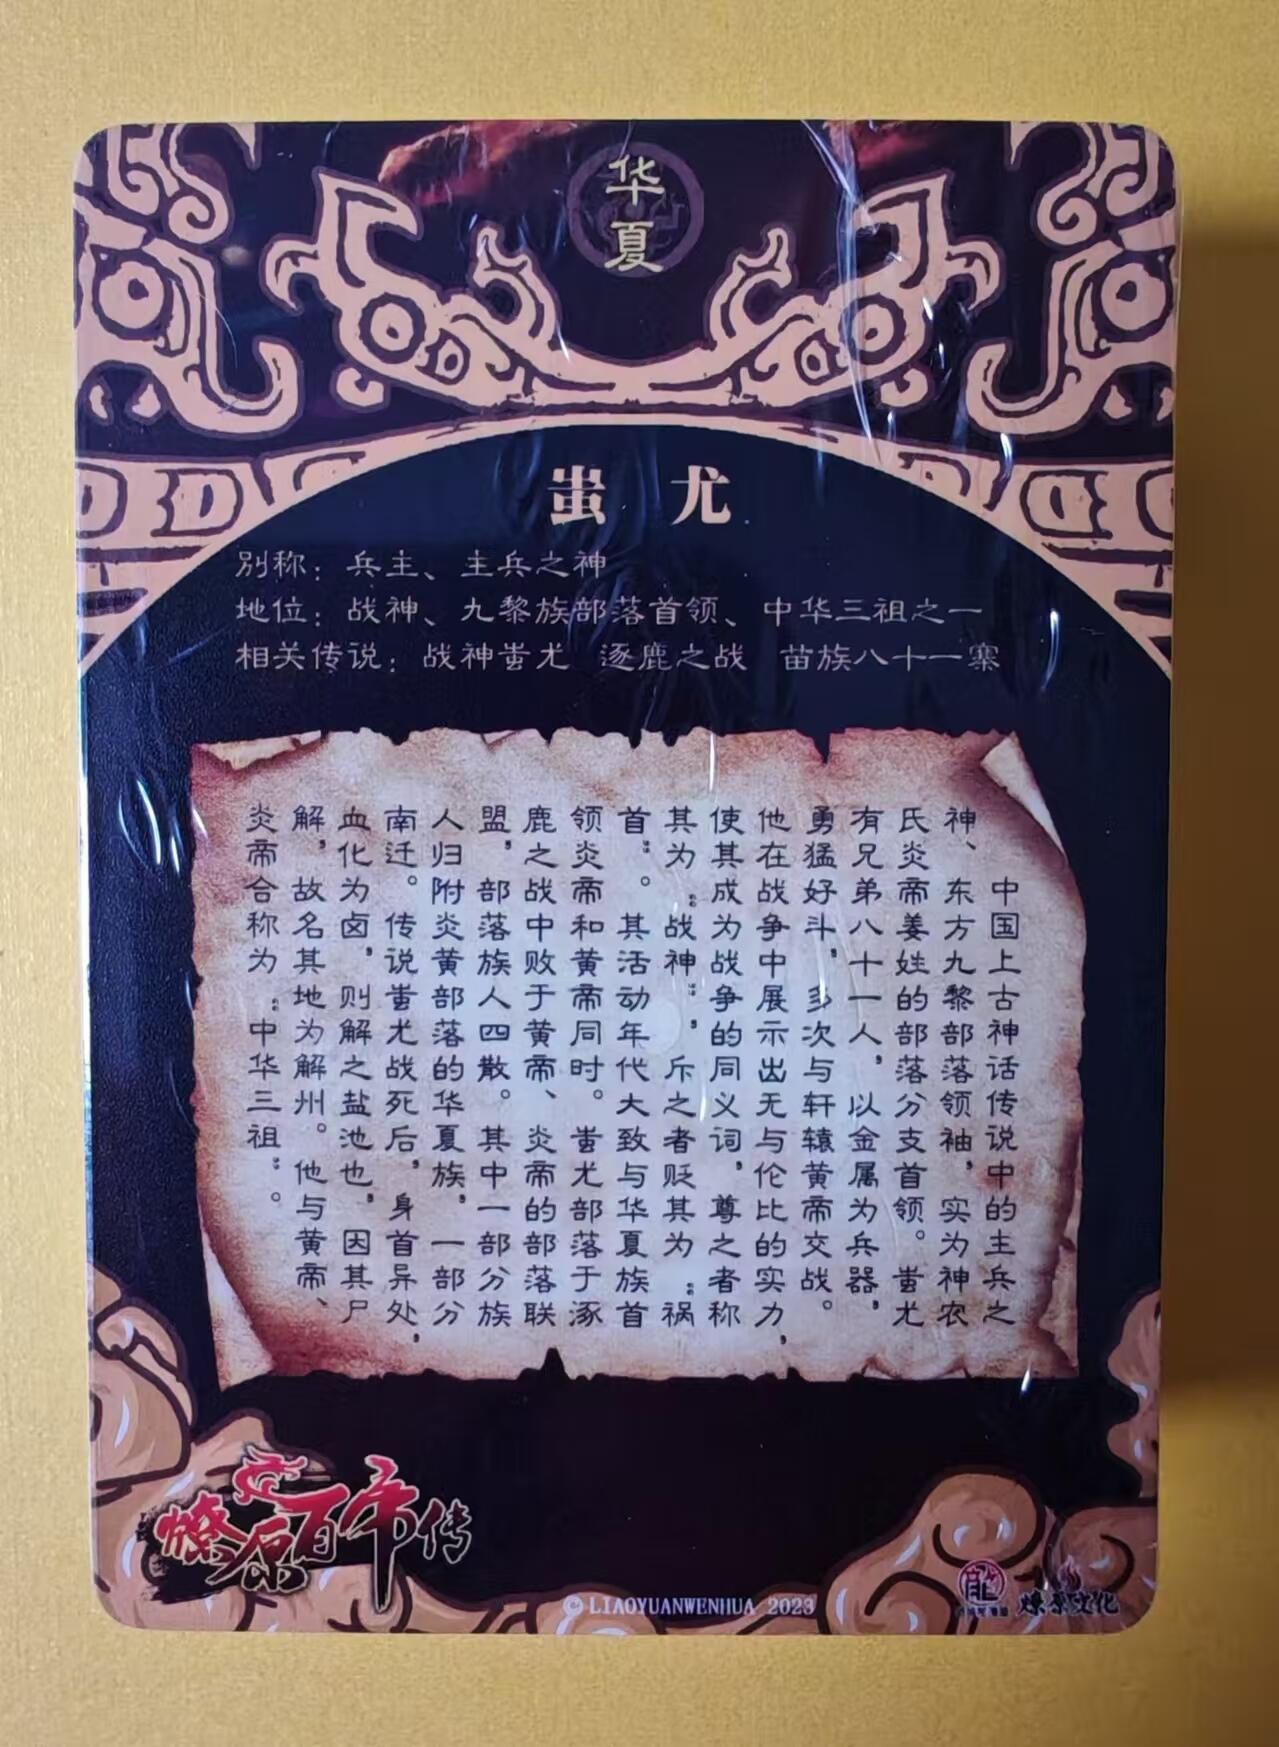 华夏
蚩尤
别称：兵主、主兵之神
地位：战神、九黎族部落首领、中华三祖之一
相关传说：战神蚩尤 逐鹿之战 苗族八十一寨
中国上古神话传说中的主兵之
神、东方九黎部落领袖，实为神农
氏炎帝姜姓的部落分支首领。蚩尤
有兄弟八十一人，以金属为兵器，
勇猛好斗，多次与轩辕黄帝交战。
他在战争中展示出无与伦比的实力，
使其成为战争的同义词，尊之者称
其为“战神”，斥之者贬其为“祸
首”。其活动年代大致与华夏族首
领炎帝和黄帝同时。蚩尤部落于涿
鹿之战中败于黄帝、炎帝的部落联
盟，部落族人四散。其中一部分族
人归附炎黄部落的华夏族，一部分
南迁。传说蚩尤战死后，身首异处，
血化为卤，则解之盐池也，因其尸
解，故名其地为解州。他与黄帝、
炎帝合称为“中华三祖”。
燎原百帝传
©LIAOYUANWENHUA 2023
燎原文化